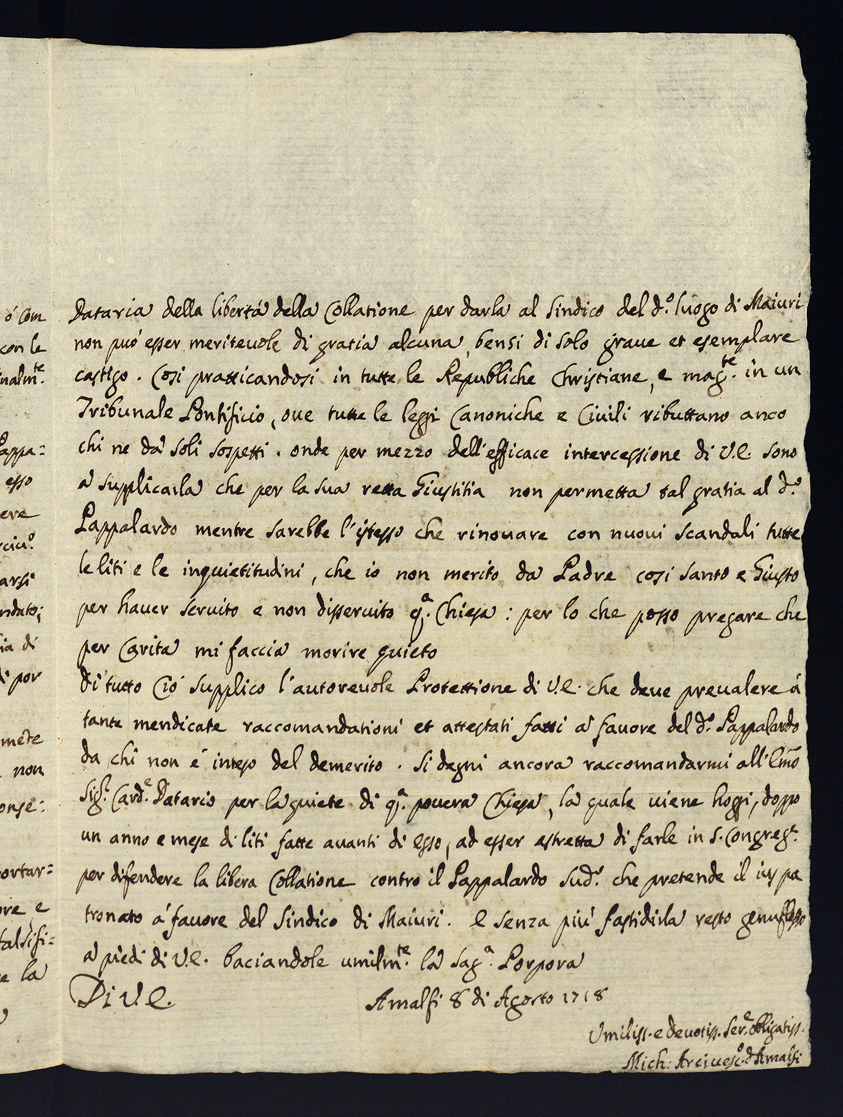 ó con
con le
inalm.te
appa=
esso
eve
arsi
ndato;
ia di
di por
mete
non
onse=
ortar=
ore e
falsifi=
e la
Dataria della libertá della Collatione per darla al Sindico del d.º luogo di Maiuri
non puó esser meritevole di gratia alcuna, bensi di solo grave et esemplare
castigo. Cosi pratticandosi in tutte le Republiche Christiane, e mag.te in un
Tribunale Pontificio, ove tutte le leggi Canoniche e Civili ributtano anco
chi ne dá soli sospetti. onde per mezzo dell'efficace intercessione di V.E. sono
á supplicarla che per la sua retta Giustitia non permetta tal gratia al d.º
Pappalardo mentre sarebbe l'istesso che rinovare con nuovi scandali tutte
le liti e le inquietitudini, che io non merito da Padre cosi santo e Giusto
per haver servito e non disservito q.a Chiesa: per lo che posso pregare che
per Carita mi faccia morire quieto
Di tutto Ció supplico l'autorevole Protettione di V.E. che deve prevalere á
tante mendicate raccomandationi et attestati fatti á favore del d.º Pappalardo
da chi non é inteso del demerito. Si degni ancora raccomandarmi all'Emō
Sig.r Card.e Datario per la quiete di q.a povera Chiesa, la quale viene hoggi, doppo
un anno e mese di liti fatte avanti di esso, ad esser astretta di farle in S. Congreg.e
per difendere la libera Collatione contro il Pappalardo sud.º che pretende il ius pa
tronato á favore del Sindico di Maiuri. E senza piú fastidirla resto genuflesso
á piedi di V.E. baciandole umilm.te la sag.a Porpora
Di V.E.
Amalfi 8 di Agosto 1718
Umiliss. e devotiss. Ser.e obligatiss.
Mich: Arcivesc.º d'Amalfi